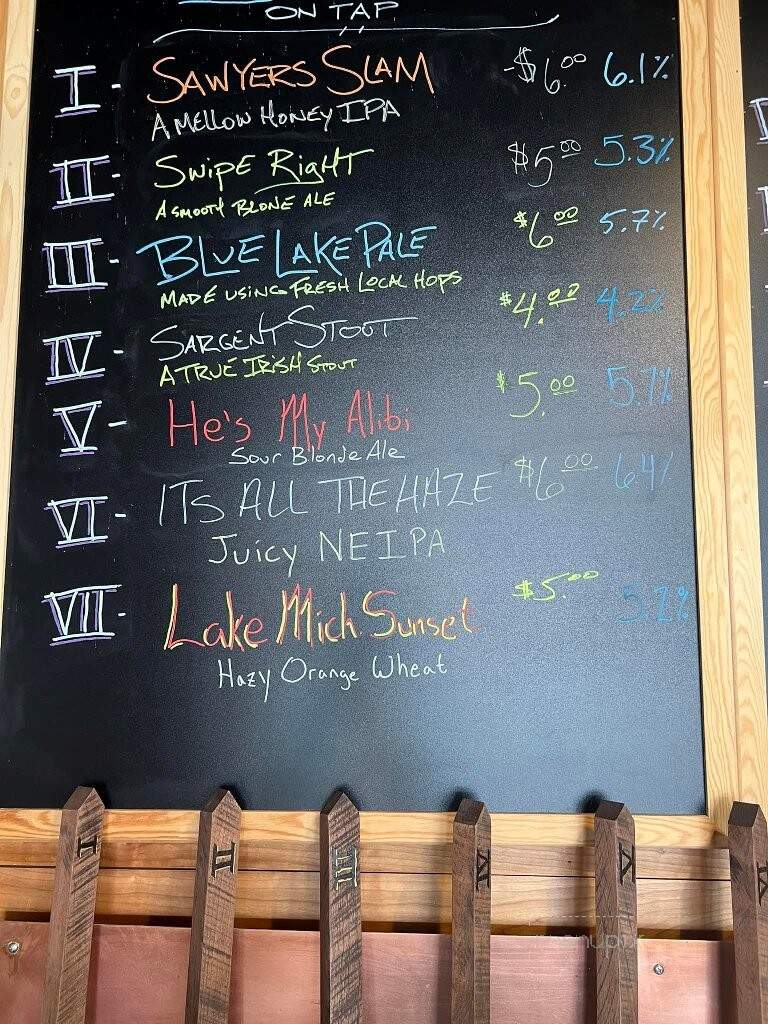 ON TAP
I - SAWYERS SLAM - $6.00 6.1%
A MELLOW HONEY IPA
II - SWIPE RIGHT $5.00 5.3%
A SMOOTH BLONE ALE
III - BLUE LAKE PALE $6.00 5.7%
MADE USING FRESH LOCAL HOPS
IV - SARGENT STOUT $4.00 4.2%
A TRUE IRISH STOUT
V - He's My Alibi $5.00 5.7%
Sour Blonde Ale
VI - ITS ALL THE HAZE $6.00 6.4%
Juicy NEIPA
VII - Lake Mich Sunset $5.00 5.2%
Hazy Orange Wheat
I II III IV V V